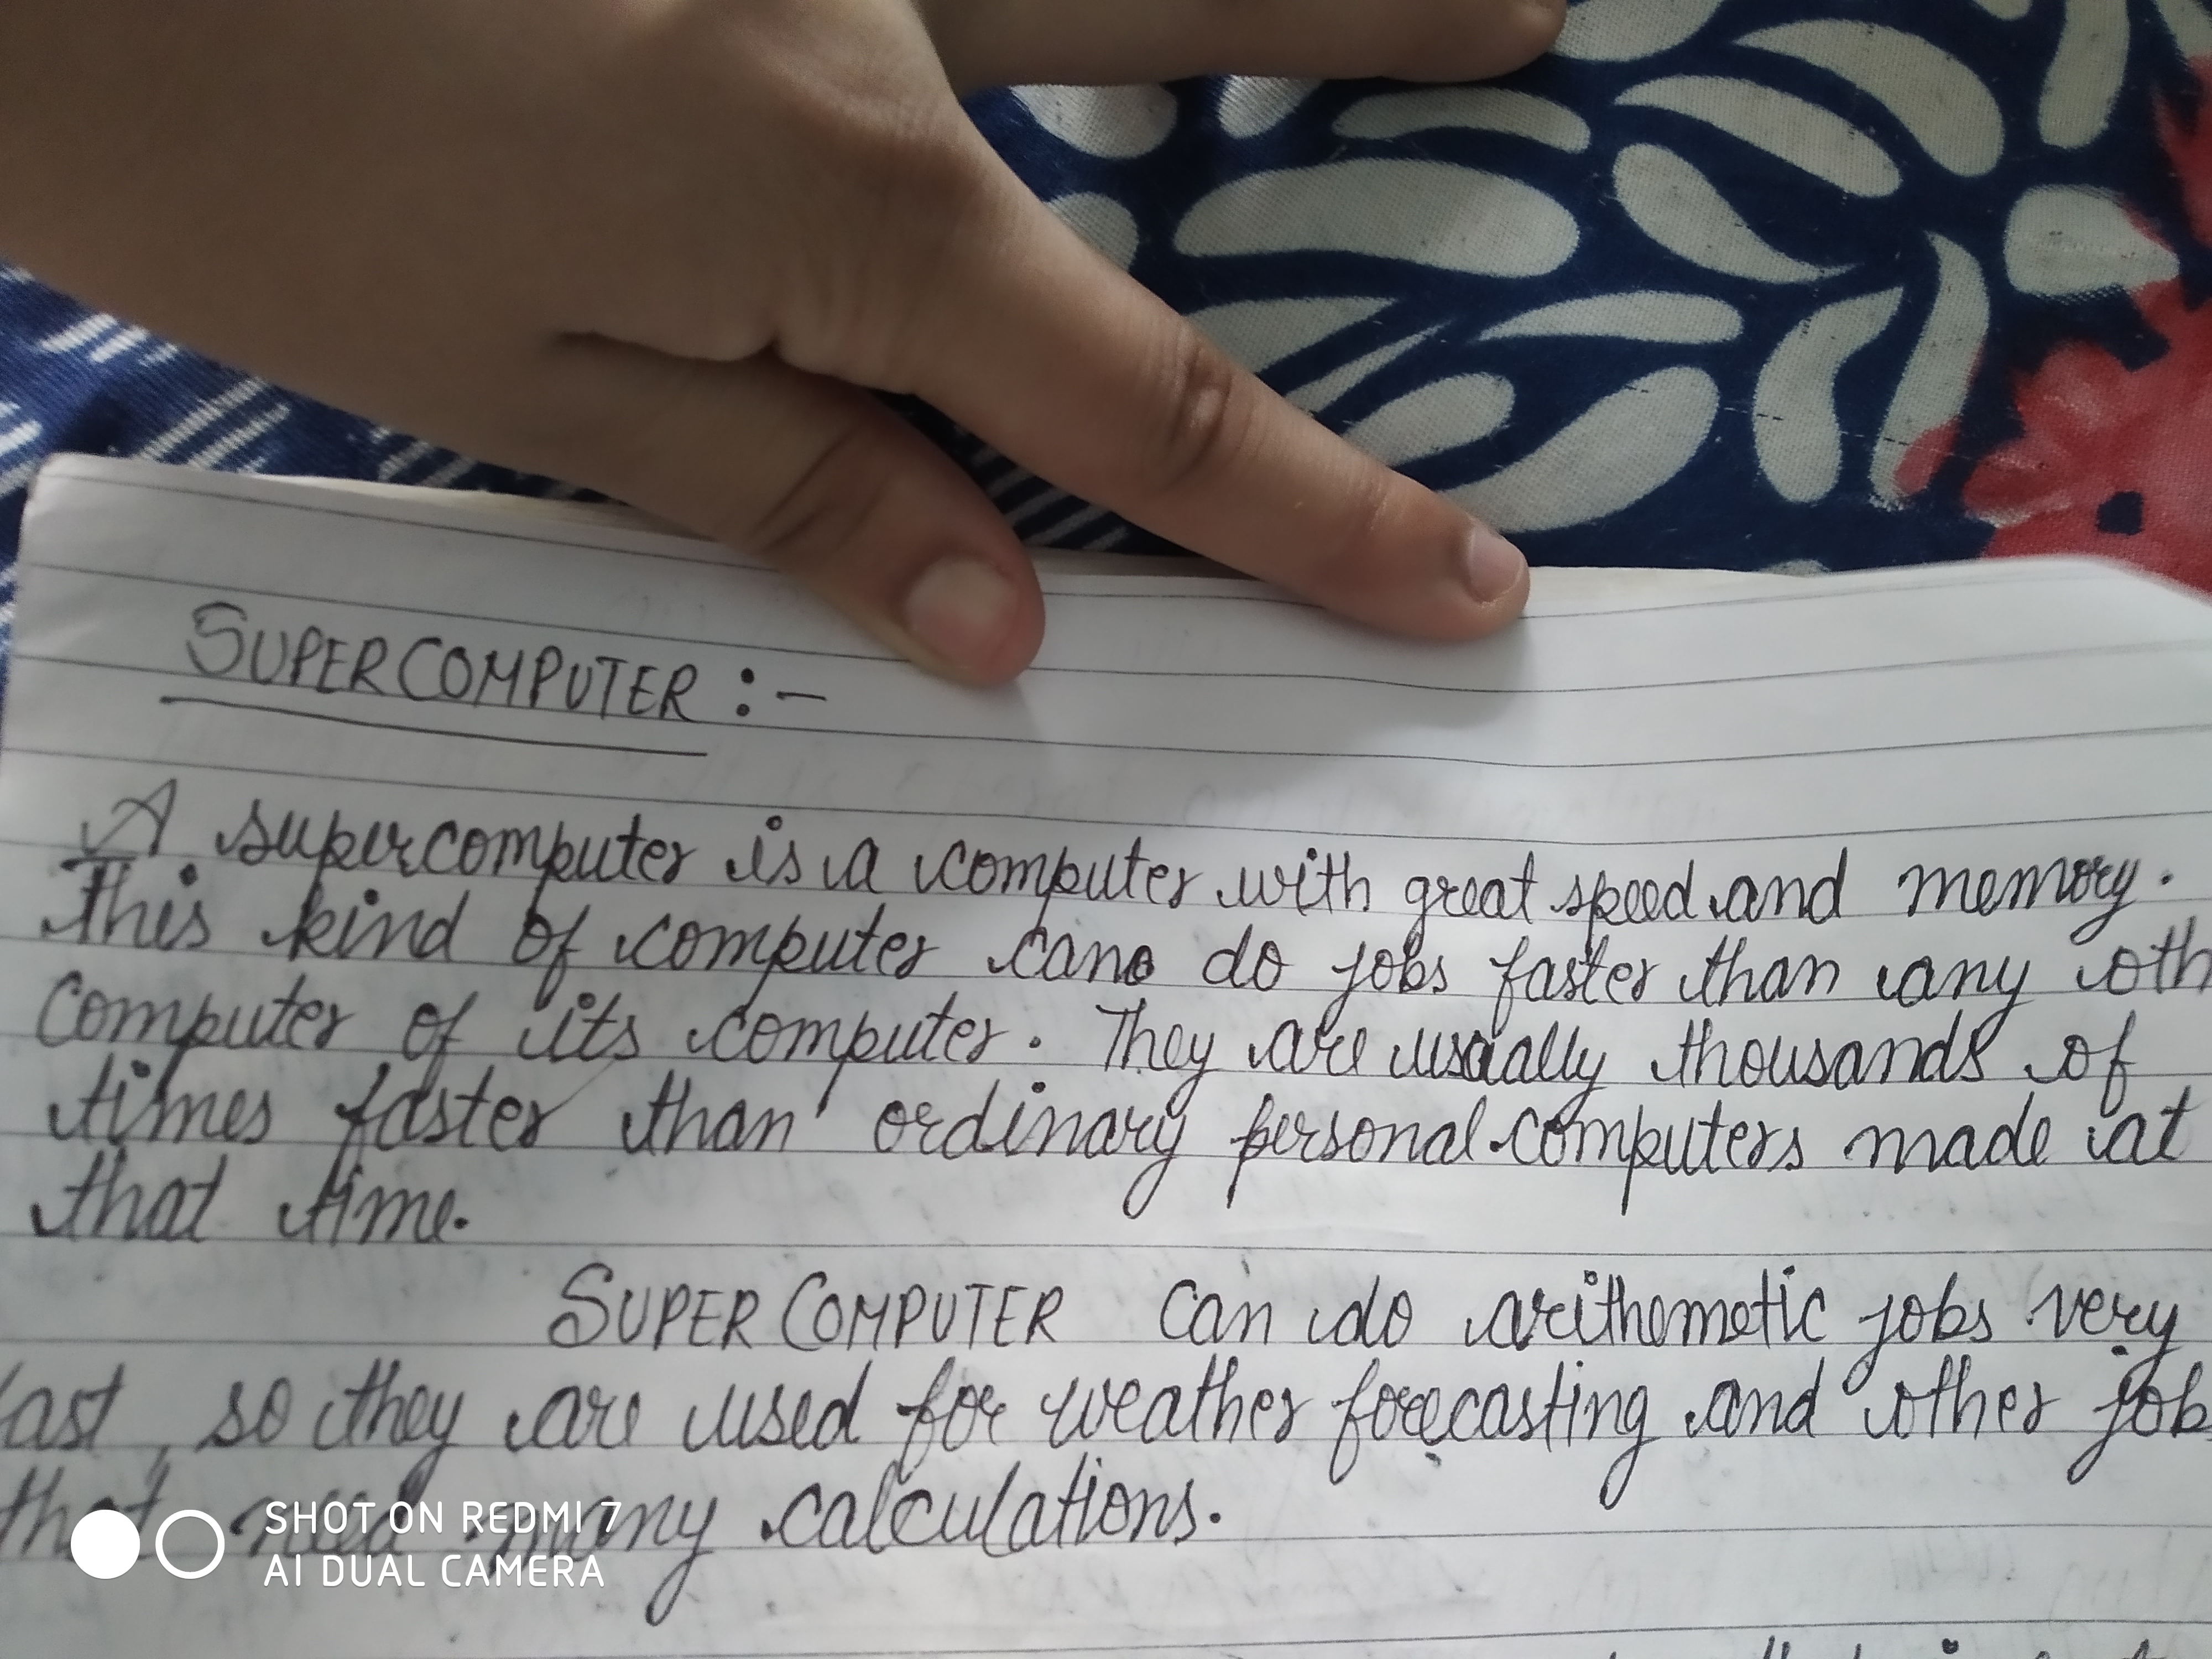 SUPERCOMPUTER :-
A supercomputer is a computer with great speed and memory.
This kind of computer cano do jobs faster than any oth
computer of its computer. They are usually thousands of
times faster than ordinary personal computers made at
that time.
SUPERCOMPUTER can do arithemetic jobs very
fast, so they are used for weather forecasting and other job
that need many calculations.
SHOT ON REDMI 7
AI DUAL CAMERA